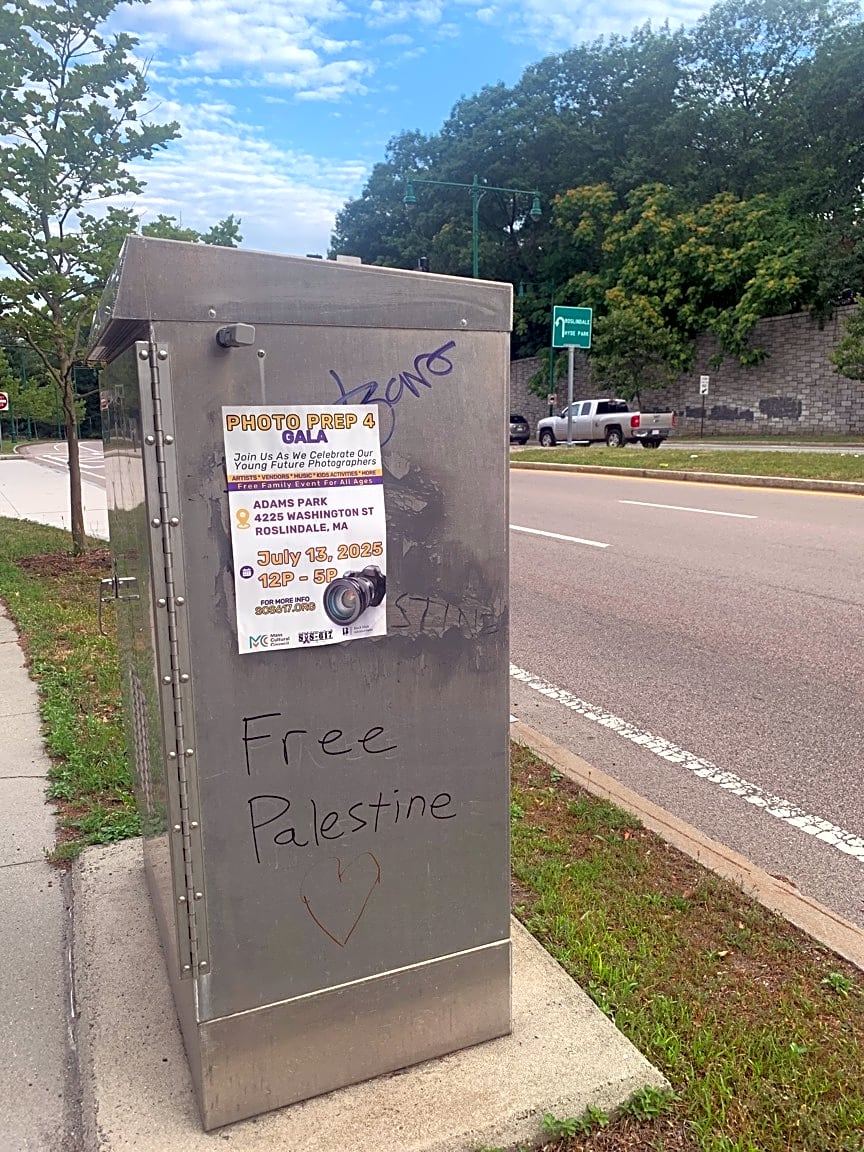 PHOTO PREP 4
GALA
Join Us As We Celebrate Our
Young Future Photographers
ARTISTS * VENDORS * MUSIC * KIDS ACTIVITIES * MORE
Free Family Event For All Ages
ADAMS PARK
4225 WASHINGTON ST
ROSLINDALE, MA
July 13, 2025
12P - 5P
FOR MORE INFO
SOS617.ORG
Mass
Cultural
Council
SXS-617
STINE
Free
Palestine
ROSLINDALE
HYDE PARK